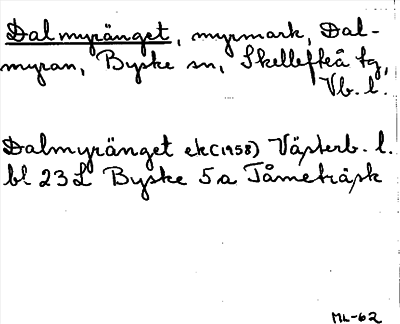 Dalmyränget, myrmark, Dal-
myran, Byske sn, Skellefteå tg,
Vb. l.
Dalmyränget ek(1958) Västerb. l.
bl 23 L Byske 5a Tåmeträsk
ML-62